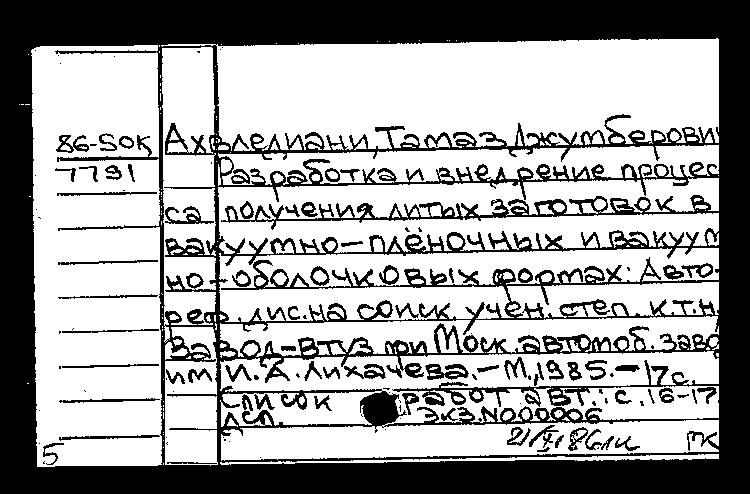 86-5ОК Ахвледиани, Тамаз Джумберови
7791 Разработка и внедрение процес
са получения литых заготовок в
вакуумно-плёночных и вакуум
но-оболочковых формах: Авто-
реф. дис. на соиск. учен. степ. к.т.н.
Завод-втуз при Моск. автомоб. заво
им. И.А. Лихачева. - М., 1985. - 17 с.
Список работ авт.: с. 16-17
ДСП. Экз. N000006
МК
5